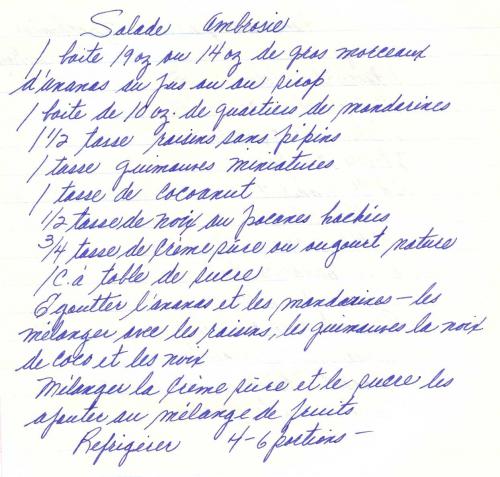 Salade Ambrosie
1 boite 19 oz ou 14 oz de gros morceaux
d'ananas au jus ou au sirop
1 boite de 10 oz. de quartiers de mandarines
1 1/2 tasse raisins sans pépins
1 tasse guimauves miniatures
1 tasse de cocoanut
1/2 tasse de noix ou pacanes hachées
3/4 tasse de crème sure ou yogourt nature
1 C. à table de sucre
Egoutter l'ananas et les mandarines - les
mélanger avec les raisins, les guimauves la noix
de coco et les noix
Mélanger la crème sure et le sucre les
ajouter au mélange de fruits
Réfrigérer 4-6 portions -